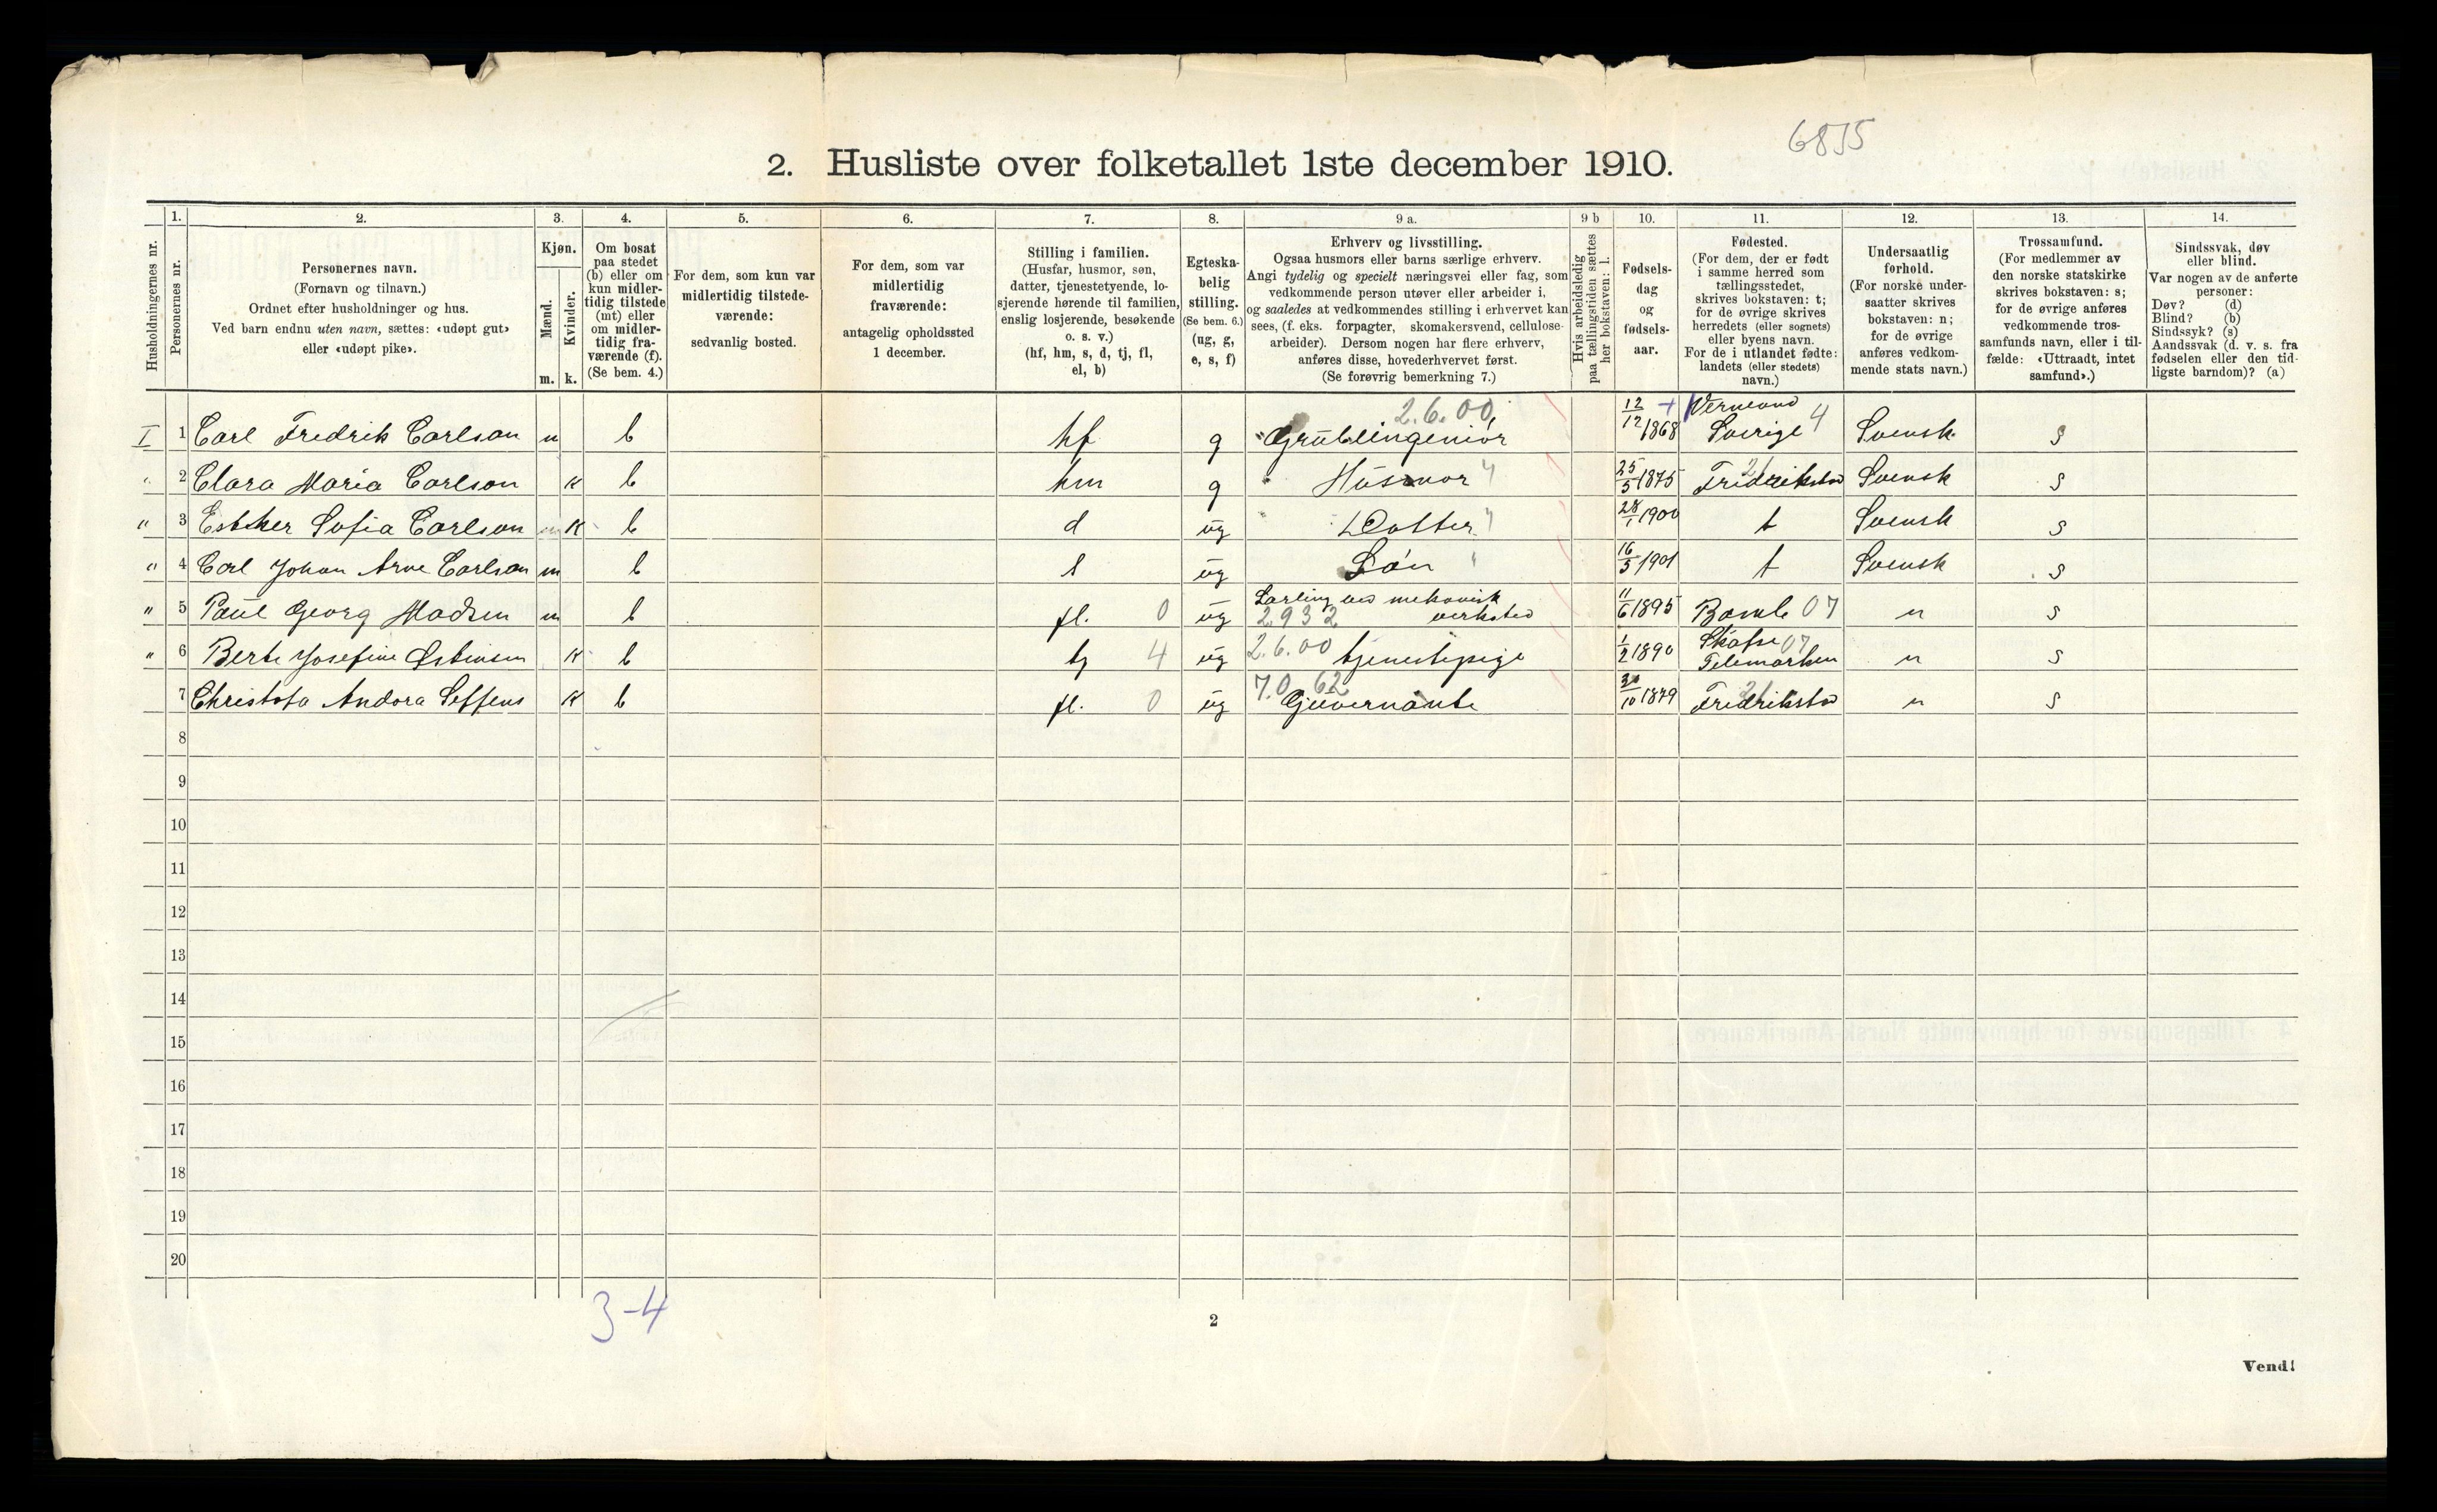 6835
2. Husliste over folketallet 1ste december 1910.
Husholdningernes nr.
1.
Personernes nr.
2.
Personernes navn.
(Fornavn og tilnavn.)
Ordnet efter husholdninger og hus.
Ved barn endnu uten navn, sættes: «udøpt gut»
eller «udøpt pike».
3.
Kjøn.
Mænd.
Kvinder.
m. k.
4.
Om bosat
paa stedet
(b) eller om
kun midler-
tidig tilstede
(mt) eller
om midler-
tidig fra-
værende (f).
(Se bem. 4.)
5.
For dem, som kun var
midlertidig tilstede-
værende:
sedvanlig bosted.
6.
For dem, som var
midlertidig
fraværende:
antagelig opholdssted
1 december.
7.
Stilling i familien.
(Husfar, husmor, søn,
datter, tjenestetyende, lo-
sjerende hørende til familien,
enslig losjerende, besøkende
o. s. v.)
(hf, hm, s, d, tj, fl,
el, b)
8.
Egteska-
belig
stilling.
(Se bem. 6.)
(ug, g,
e, s, f)
9 a.
Erhverv og livsstilling.
Ogsaa husmors eller barns særlige erhverv.
Angi tydelig og specielt næringsvei eller fag, som
vedkommende person utøver eller arbeider i,
og saaledes at vedkommendes stilling i erhvervet kan
sees, (f. eks. forpagter, skomakersvend, cellulose-
arbeider). Dersom nogen har flere erhverv,
anføres disse, hovederhvervet først.
(Se forøvrig bemerkning 7.)
9 b
Hvis arbeidsledig
paa tællingstiden sættes
her bokstaven: l.
10.
Fødsels-
dag
og
fødsels-
aar.
11.
Fødested.
(For dem, der er født
i samme herred som
tællingsstedet,
skrives bokstaven: t;
for de øvrige skrives
herredets (eller sognets)
eller byens navn.
For de i utlandet fødte:
landets (eller stedets)
navn.)
12.
Undersaatlig
forhold.
(For norske under-
saatter skrives
bokstaven: n;
for de øvrige
anføres vedkom-
mende stats navn.)
13.
Trossamfund.
(For medlemmer av
den norske statskirke
skrives bokstaven: s;
for de øvrige anføres
vedkommende tros-
samfunds navn, eller i til-
fælde: «Uttraadt, intet
samfund».)
14.
Sindssvak, døv
eller blind.
Var nogen av de anførte
personer:
Døv? (d)
Blind? (b)
Sindssyk? (s)
Aandssvak (d. v. s. fra
fødselen eller den tid-
ligste barndom)? (a)
I 1 Carl Fredrik Carlson m b hf g 2.6.00 Grubeingeniør 12/12 1868 Vermland Sverige 4 Svensk s
" 2 Clara Maria Carlson k b hm g Husmor " 25/5 1875 Fredrikstad 21 Svensk s
" 3 Esther Sofia Carlson k b d ug Datter " 28/1 1900 t Svensk s
" 4 Carl Johan Arne Carlson m b s ug Søn " 16/5 1901 t Svensk s
" 5 Paul Georg Madsen m b fl. 0 ug Lærling ved mekanisk verksted 2932 11/6 1895 Bamle 07 n s
" 6 Berte Josefine Østensen k b tj 4 ug 2.6.00 tjenestepige 1/2 1890 Skafse 07 Telemarken n s
7 Christofa Andora Seffens k b fl. 0 ug 7.0 62 Guvernante 30/10 1879 Fredrikstad 21 n s
8
9
10
11
12
13
14
15
16
17
18
19
20
3-4
2
Vend!